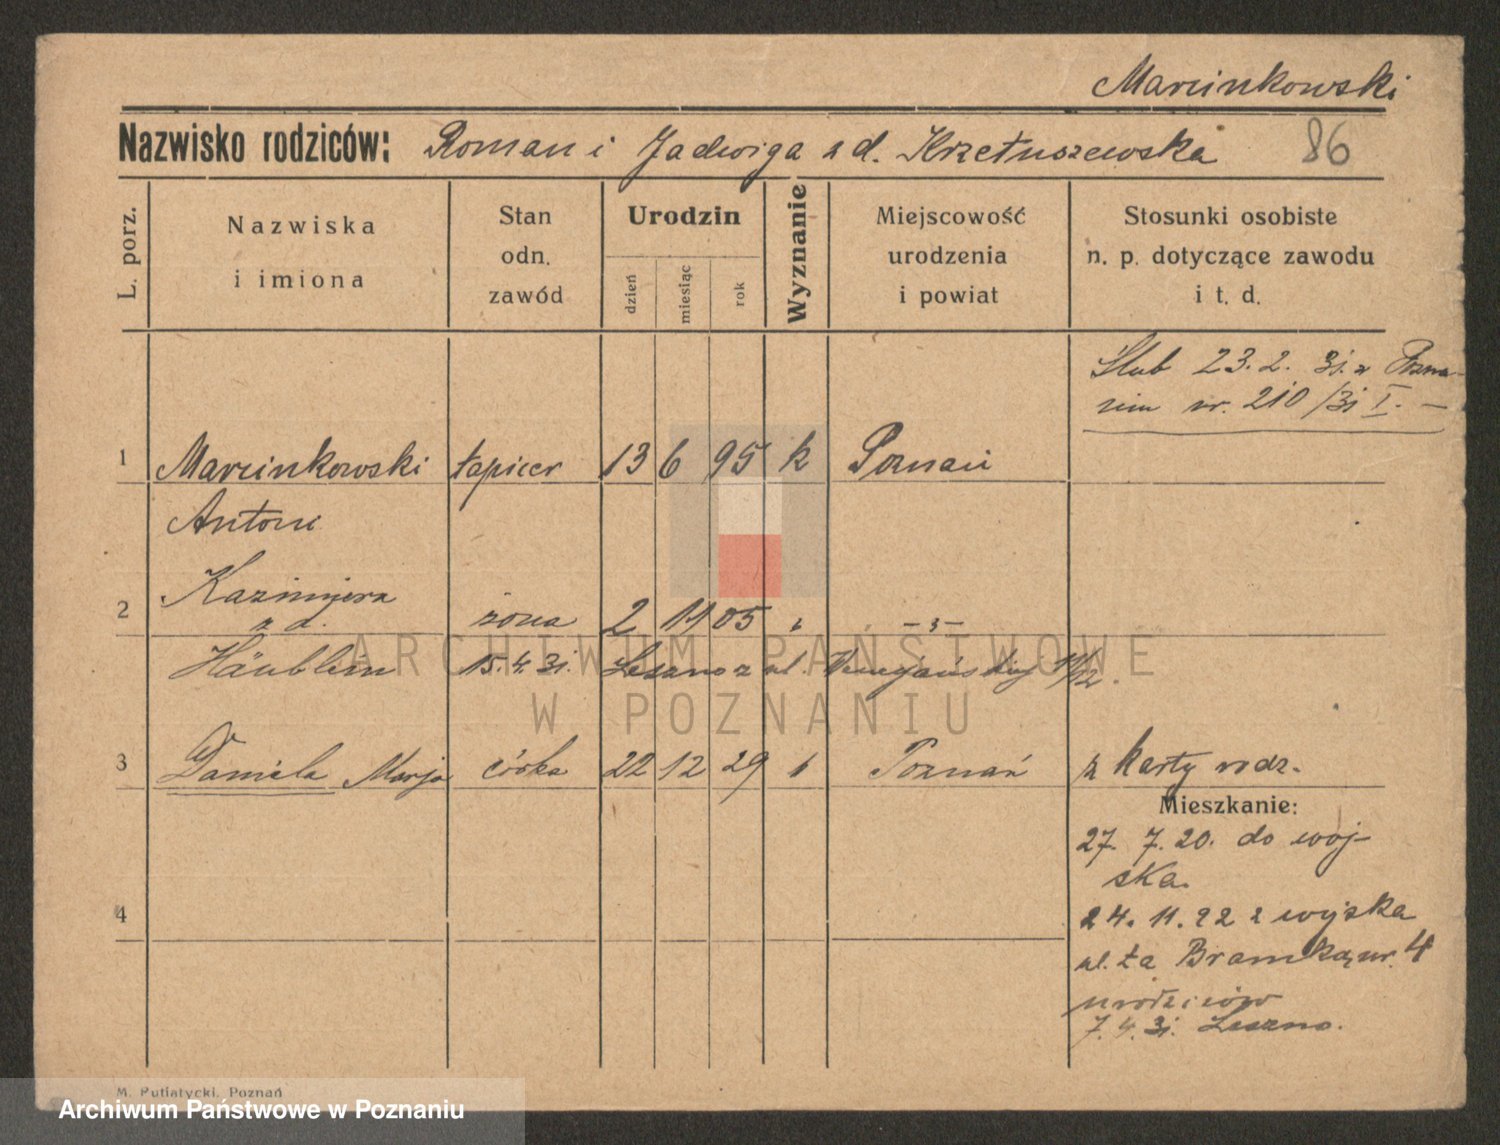 Marcinkowski
Nazwisko rodziców: Roman i Jadwiga z d. Krzetuszewska 86
L. porz.
Nazwiska
i imiona
Stan
odn.
zawód
Urodzin
dzień
miesiąc
rok
Wyznanie
Miejscowość
urodzenia
i powiat
Stosunki osobiste
n. p. dotyczące zawodu
i t. d.
Ślub 23. 2. 31. w Pozna-
niu nr. 210/31 I. —
1 Marcinkowski tapicer 13 6 95 k Poznań
Antoni
2 Kazimiera żona 2 11 05 „ —„—
z d.
Häublein 15. 4. 31. Leszno z ul. 11/12.
3 Daniela Marja córka 22 12 29 Poznań z karty rodz.
Mieszkanie:
27. 7. 20. do woj-
ska.
4
24. 11. 22 z wojska
ul. Za Bramką nr. 4
u rodziców
7. 4. 31. Leszno.
M. Putiatycki, Poznań
ARCHIWUM PAŃSTWOWE
W POZNANIU
Archiwum Państwowe w Poznaniu